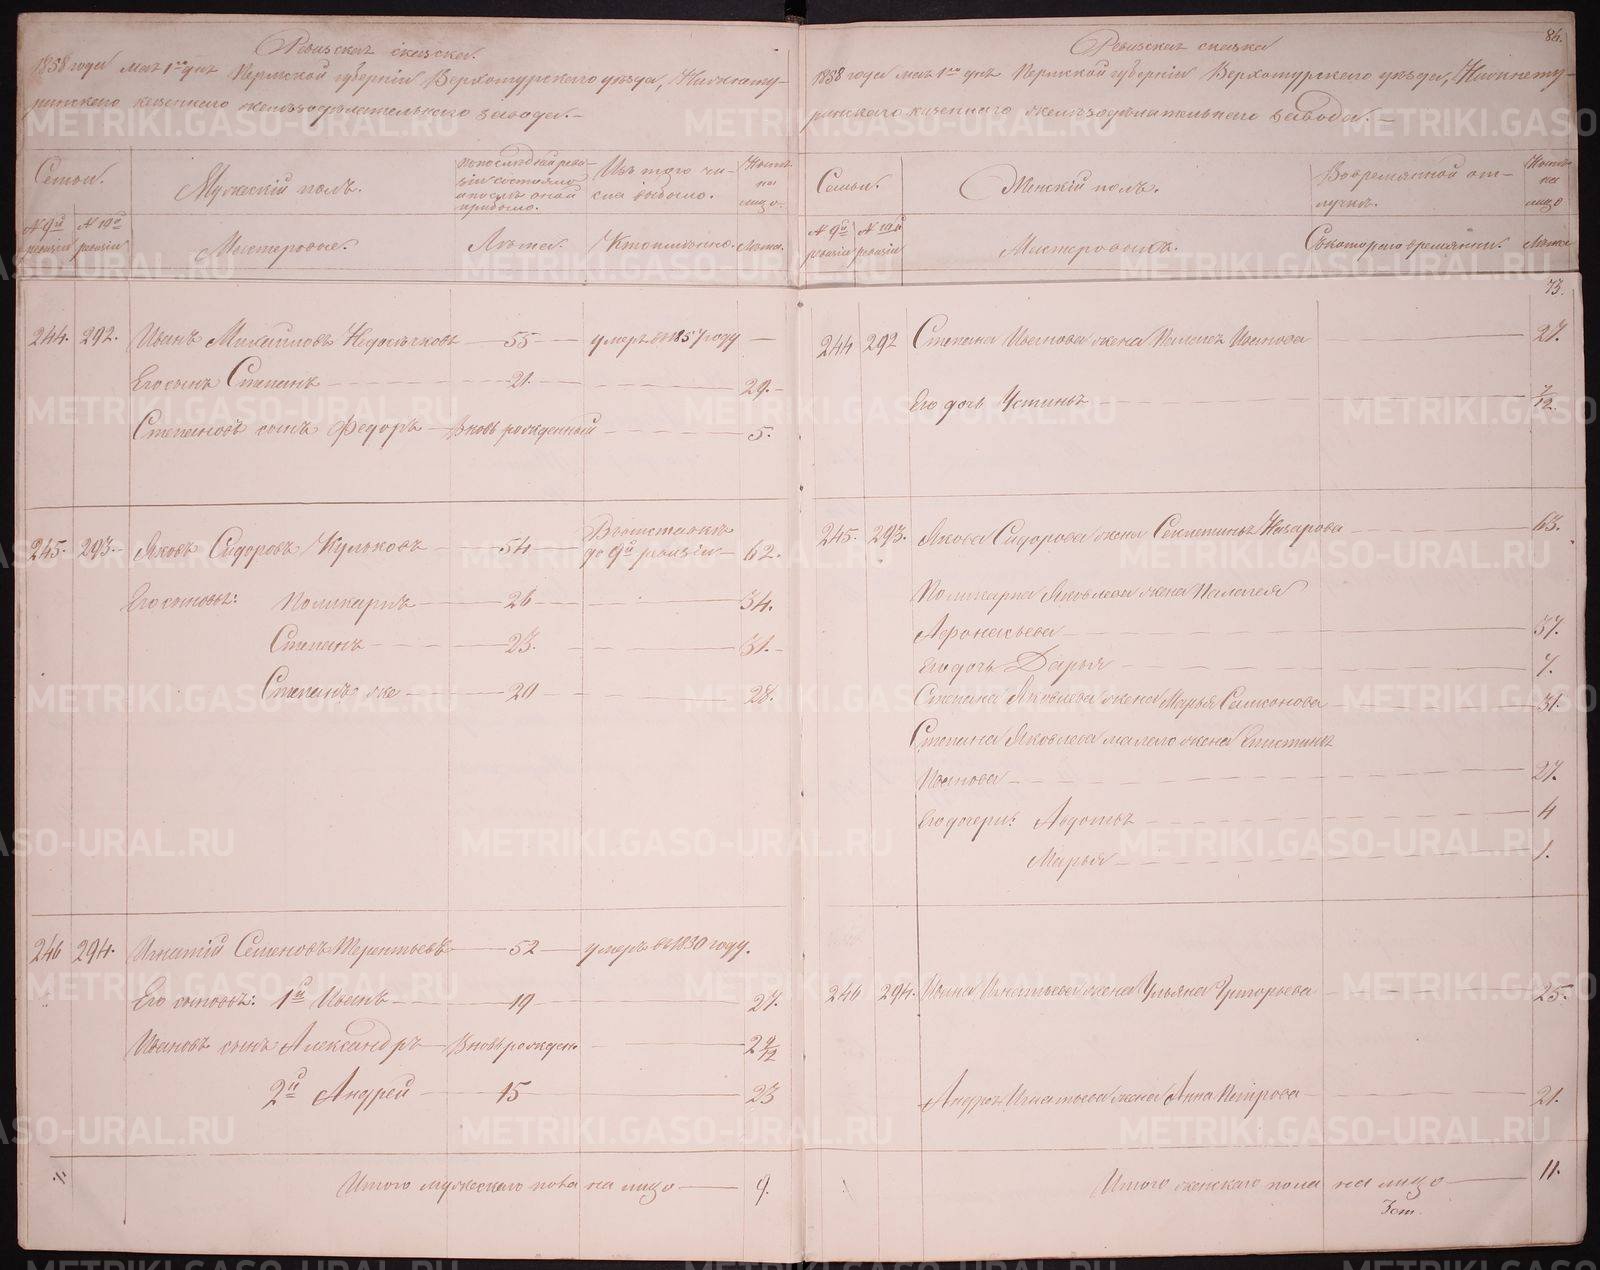 Ревизская сказка.
1858 года мая 1го дня Пермской губернiи Верхотурскаго уѣзда, Нижнету-
ринскаго казеннаго желѣзодѣлательнаго завода.
Семьи.
Мужескiй полъ.
По последней реви-
зiи состояло
и послѣ оной
прибыло.
Изъ того чи-
сла выбыло.
Нынѣ
на
лицо.
№ 9й ревизiи
№ 10й ревизiи
Мастеровые.
Лѣта.
Когда именно.
Лѣта.
244. 292. Иванъ Михайловъ 55 умеръ въ 1857 году
Его сынъ Степанъ 21. 29.
Степановъ сынъ Федоръ Вновь рожденный 5.
245. 293. Яковъ Сидоровъ Кульковъ 54 до 9й ревизiи 62.
Его сыновья: Поликарпъ 26 34.
Степанъ 23. 31.
Степанъ же 20 28.
246 294. Игнатiй Семеновъ Терентьевъ 52 умеръ въ 1850 году.
Его сыновья: 1й Иванъ 19 27.
Ивановъ сынъ Александръ Вновь рожден
2й Андрей 15 23
Итого мужескаго пола на лицо 9.
84.
Ревизская сказка
1858 года мая 1го дня Пермской губернiи Верхотурскаго уѣзда, Нижнету-
ринскаго казеннаго желѣзодѣлательнаго завода.
Семьи.
Женскiй полъ.
Во временной от-
лучкѣ.
Нынѣ
на
лицо
№ 9й ревизiи
№ 10й ревизiи
Мастеровыхъ.
Съ котораго времяни.
Лѣта
73.
244 292 Степана Иванова жена Палагея Иванова 27.
Его дочь Устинья 7/12
245. 293. Якова Сидорова жена Секлетинья Назарова 63.
Поликарпа Яковлева жена Палагея
Афонасьева 37.
Его дочь Дарья 7.
Степана Яковлева жена Марья Самсонова 31.
Степана Яковлева малаго жена
Иванова 27.
Его дочери: Авдотья 4
Марья 1.
246 294. Ивана Игнатьева жена Ульяна Григорьева 25.
Андрея Игнатьева жена Анна Петрова 21.
Итого женскаго пола на лицо 11.
METRIKI.GASO-URAL.RU